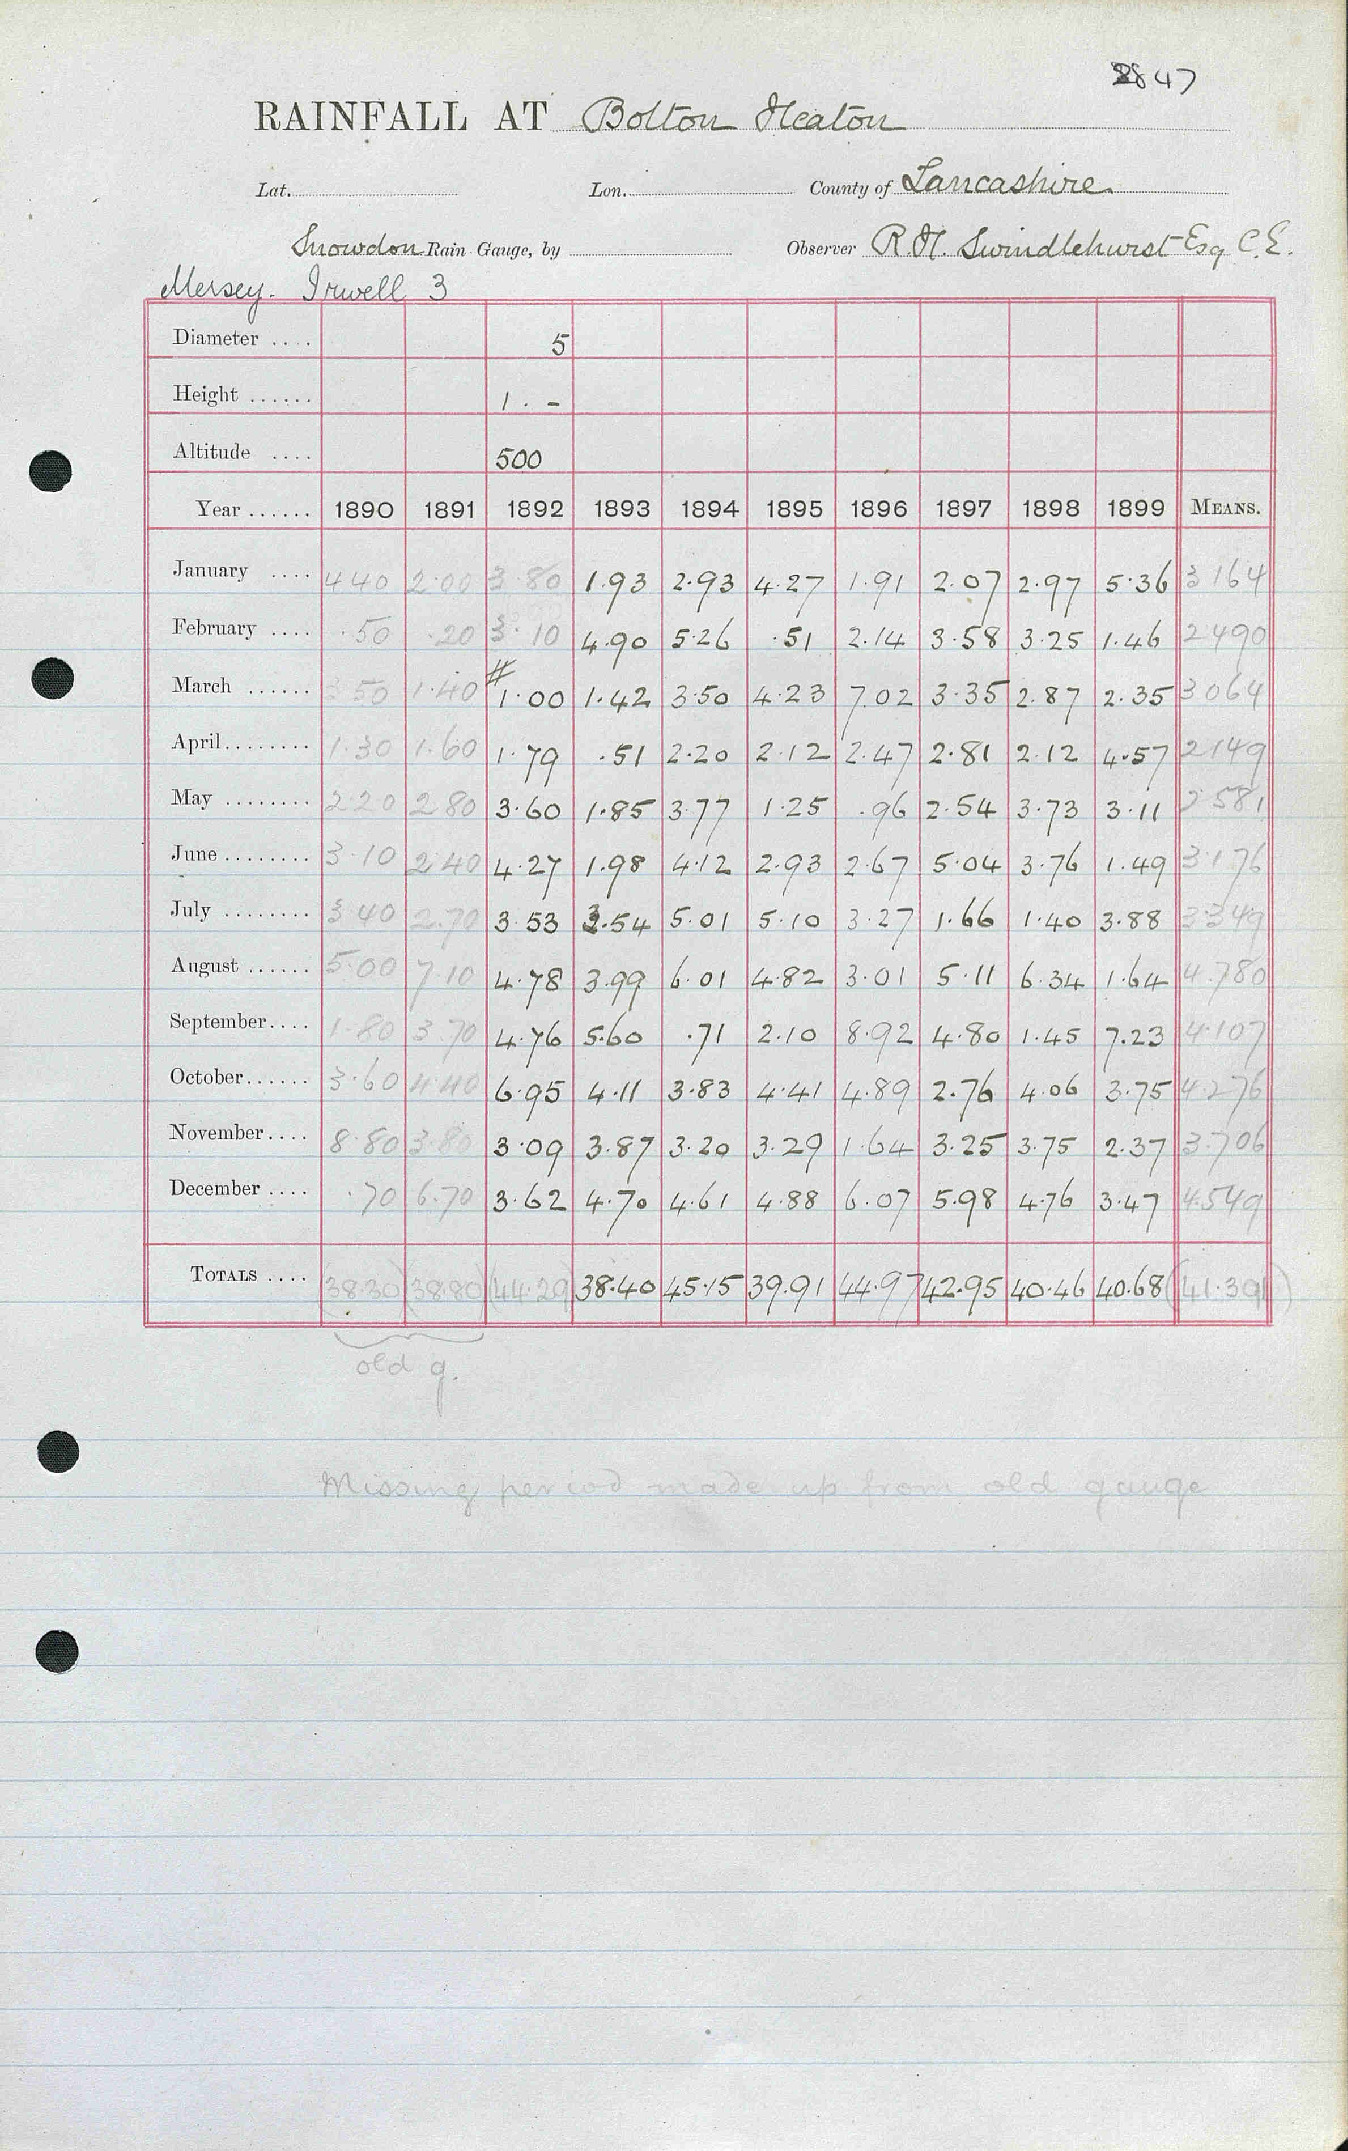 2847
RAINFALL AT Bolton Heaton
Lat. Lon. County of Lancashire.
Snowdon Rain Gauge, by Observer R. H. Swindlehurst Esq C.E.
Mersey. Irwell 3
Diameter .... 5
Height ...... 1 . -
Altitude .... 500
Year ...... 1890 1891 1892 1893 1894 1895 1896 1897 1898 1899 MEANS.
January .... 4.40 2.00 3.80 1.93 2.93 4.27 1.91 2.07 2.97 5.36 3.164
February .... .50 .20 3.10 4.90 5.26 .51 2.14 3.58 3.25 1.46 2.490
March ...... 3.50 1.40 # 1.00 1.42 3.50 4.23 7.02 3.35 2.87 2.35 3.064
April ........ 1.30 1.60 1.79 .51 2.20 2.12 2.47 2.81 2.12 4.57 2.149
May ........ 2.20 2.80 3.60 1.85 3.77 1.25 .96 2.54 3.73 3.11 2.581
June ........ 3.10 2.40 4.27 1.98 4.12 2.93 2.67 5.04 3.76 1.49 3.176
July ........ 3.40 2.70 3.53 3.54 5.01 5.10 3.27 1.66 1.40 3.88 3.349
August ...... 5.00 7.10 4.78 3.99 6.01 4.82 3.01 5.11 6.34 1.64 4.780
September .... 1.80 3.70 4.76 5.60 .71 2.10 8.92 4.80 1.45 7.23 4.107
October ...... 3.60 4.40 6.95 4.11 3.83 4.41 4.89 2.76 4.06 3.75 4.276
November .... 8.80 3.80 3.09 3.87 3.20 3.29 1.64 3.25 3.75 2.37 3.706
December .... .70 6.70 3.62 4.70 4.61 4.88 6.07 5.98 4.76 3.47 4.549
TOTALS .... (38.30) (38.80) (44.29) 38.40 45.15 39.91 44.97 42.95 40.46 40.68 (41.391)
old g.
Missing period made up from old gauge